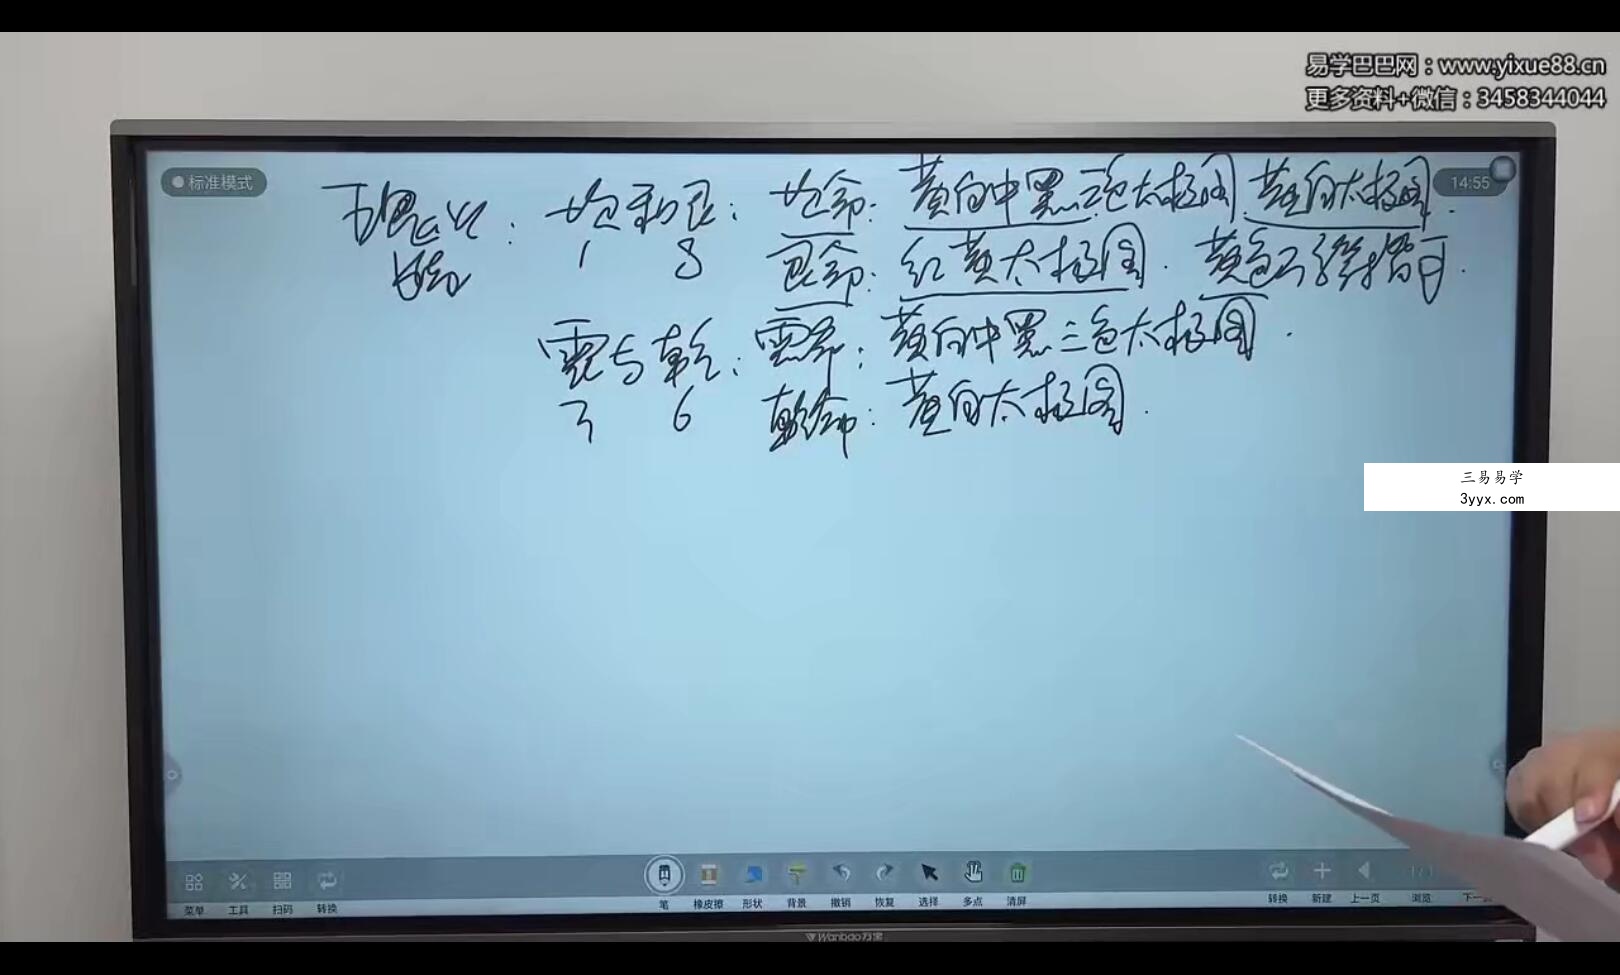 易学巴巴网：www.yixue88.cn
更多资料+微信：3458344044
标准模式
14:55
五鬼 ： 坎和艮： 坎命： 黄白中黑三色太极图. 黄白太极图.
1 8 艮命： 红黄太极图. 黄色 可.
震与乾： 震命： 黄白中黑三色太极图.
3 6 乾命： 黄白太极图.
三易易学
3yyx.com
菜单 工具 扫码 转换 笔 橡皮擦 形状 背景 撤销 恢复 选择 多点 清屏 转换 新建 上一页 浏览
Wanbao万宝